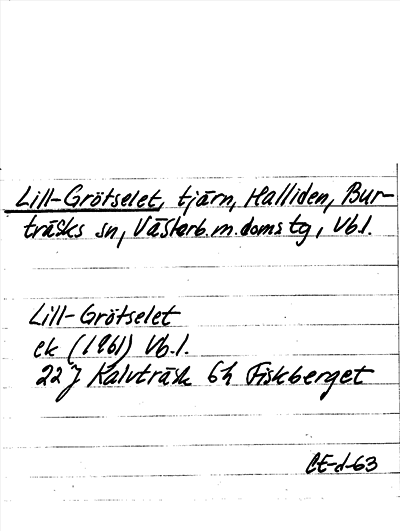 Lill-Grötselet, tjärn, Halliden, Bur-
träsks sn, Västerb.m.doms tg, Vb.l.
Lill-Grötselet
ek (1961) Vb.l.
22 J Kalvträsk 6h Fiskberget
CE-d-63